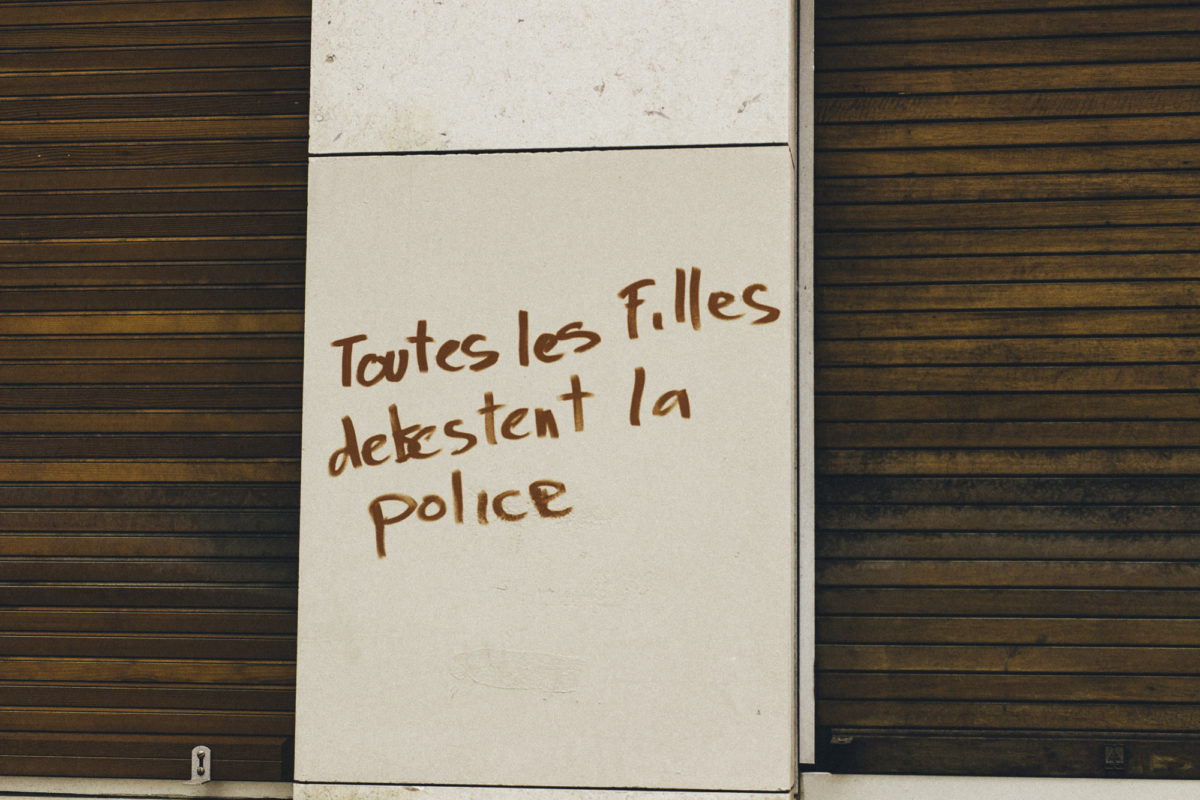 Toutes les Filles
detestent la
police